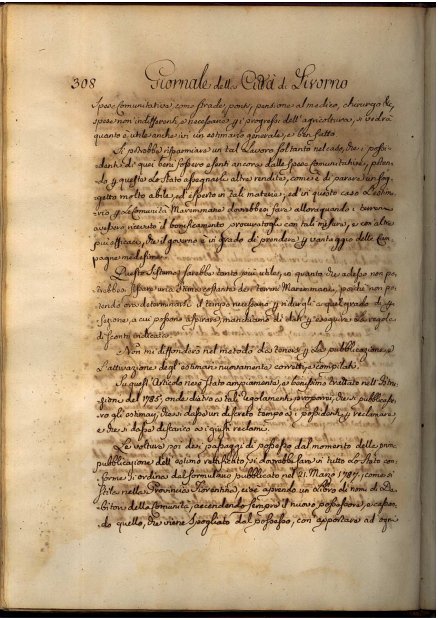 308 Giornale della Città di Livorno
spese comunitative, come strade, ponti, pensione al medico, chirurgo &c,
spese non indifferenti, e necessarie p i progressi dell'agricoltura, si vedrà
quanto è utile anche ivi un estimario generale, e ben fatto.
Si potrebbe risparmiare un tal lavoro soltanto nel caso, che i possi-
denti di quei beni fossero esenti ancora dalle spese comunitative, poten-
do p queste lo Stato assegnarli altre rendite, come è di parere un sog-
getto molto abile, ed esperto in tali materie, ed in questo caso l'estima-
rio p le comunità Maremmane dovrebbesi fare allora quando i terreni
avessero ricevuto il bonificamento procuratogli con tali misure, e con altre
più efficaci, che il governo è in grado di prendere p vantaggio delle Cam-
pagne medesime.
Questo sistema sarebbe tanto più utile, in quanto che adesso non po-
trebbesi fissare una stima costante dei terreni Maremmani, poiché non po-
tendo ora determinarsi il tempo necessario p ridurgli a quel grado di per-
fezione, a cui possono aspirare, mancheremo di dati p eseguire la regola
di sconti indicata.
Non mi diffonderò nel metodo da tenersi p la pubblicazione, e
l'attivazione degl'estimari nuovamente corretti, e compilati.
Su quest'Articolo ne è stato ampiamente, e benissimo trattato nell'Istru-
zione del 1785, onde dietro a tal regolamento proporrei, che si pubblicasse-
ro gli estimari, che si dasse un discreto tempo ai possidenti p reclamare,
e che si dasse discarico ai giusti reclami.
Le volture poi dei passaggi di possesso dal momento della pro-
pubblicazione dell'estimo rettificato, si dovrebbe fare in tutto lo Stato con-
forme si ordina dal formulario pubblicato nel 21. Marzo 1787, come si
stila nella Provincia Fiorentina, cioè aprendo un Libro di nomi di De-
bitori della Comunità, accendendo sempre il nuovo possessore, e cassan-
do quello, che viene spogliato dal possesso, con apportare ad ogni